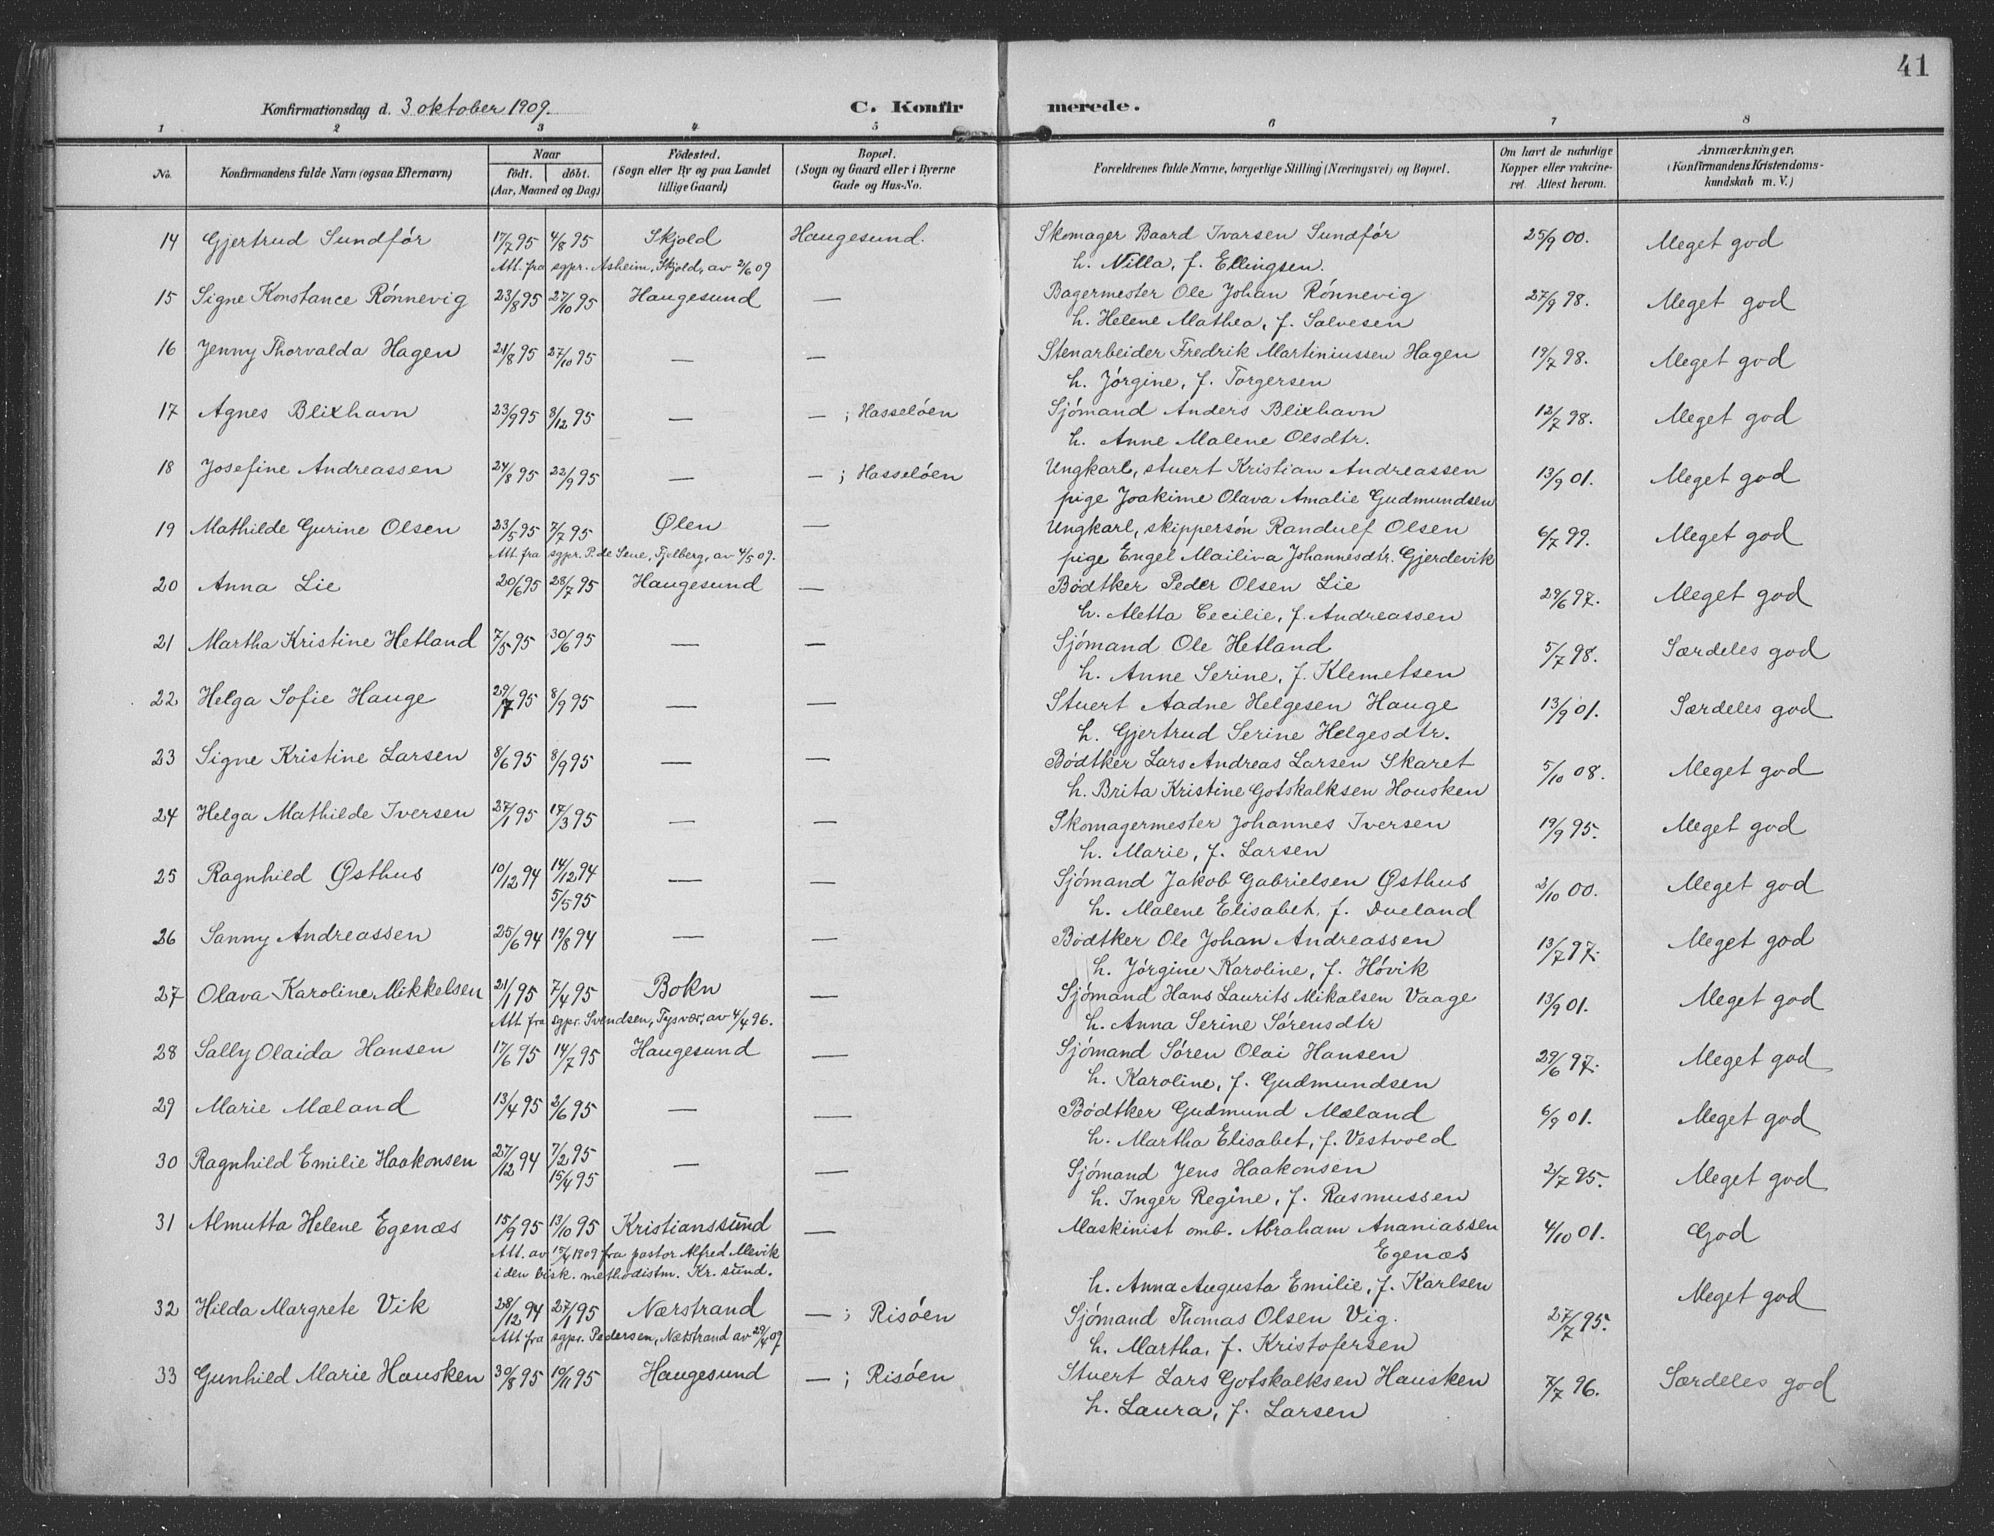 41
Konfirmationsdag d. 3 oktober 1909.
C. Konfir merede.
1 2 3 4 5 6 7 8
No. Konfirmandens fulde Navn (ogsaa Efternavn) Naar født. døbt. (Aar, Maaned og Dag) Fødested. (Sogn eller By og paa Landet tillige Gaard) Bopæl. (Sogn og Gaard eller i Byerne Gade og Hus-No. Forældrenes fulde Navne, borgerlige Stilling (Næringsvei) og Bopæl. Om havt de naturlige Kopper eller vakcineret. Attest herom. Anmærkninger. (Konfirmandens Kristendomskundskab m. V.)
14 Gjertrud Sundför 17/7 95 4/8 95 Skjold Haugesund. Skomager Baard Ivarsen Sundför 25/9 00. Meget god
Att. fra sgpr. Asheim, Skjold, av 2/6 09 h. Nilla, f. Ellingsen.
15 Signe Konstance Rönnevig 23/8 95 27/10 95 Haugesund — Bagermester Ole Johan Rönnevig 27/9 98. Meget god
h. Helene Mathea, f. Salvesen
16 Jenny Thorvalda Hagen 21/8 95 27/10 95 — — Stenarbeider Fredrik Martiniussen Hagen 19/7 98. Meget god
h. Jörgine, f. Torgersen
17 Agnes Blixhavn 23/9 95 8/12 95 — — ; Hasselöen Sjömand Anders Blixhavn 12/7 98. Meget god
h. Anne Malene Olsdtr.
18 Josefine Andreassen 24/8 95 22/9 95 — — ; Hasselöen Ungkarl, stuert Kristian Andreassen 13/9 01. Meget god
pige Joakime Olava Amalie Gudmundsen
19 Mathilde Gurine Olsen 23/5 95 7/7 95 Ølen — Ungkarl, skippersön Randulf Olsen 6/7 99. Meget god
Att fra sgpr. P. de Seue, Fjelberg, av 4/5 09. pige Engel Mailiva Johannesdtr. Gjerdevik
20 Anna Lie 20/6 95 28/7 95 Haugesund — Bödtker Peder Olsen Lie 29/6 97. Meget god
h. Aletta Cecilie, f. Andreassen
21 Martha Kristine Hetland 7/5 95 30/6 95 — — Sjömand Ole Hetland 5/7 98. Særdeles god
h. Anne Serine, f. Klemetsen
22 Helga Sofie Hauge 29/7 95 8/9 95 — — Stuert Aadne Helgesen Hauge 13/9 01. Særdeles god
h. Gjertrud Serine Helgesdtr.
23 Signe Kristine Larsen 8/6 95 8/9 95 — — Bödtker Lars Andreas Larsen Skaret 5/10 08. Meget god
h. Brita Kristine Gotskalksen Housken
24 Helga Mathilde Iversen 27/1 95 17/3 95 — — Skomagermester Johannes Iversen 19/9 95. Meget god
h. Marie, f. Larsen
25 Ragnhild Østhus 10/12 94 14/12 94 — — Sjömand Jakob Gabrielsen Østhus 2/10 00. Meget god
5/5 95 h. Malene Elisabet, f. Dueland
26 Sanny Andreassen 25/6 94 19/8 94 — — Bödtker Ole Johan Andreassen 13/7 97. Meget god
h. Jörgine Karoline, f. Hövik
27 Olava Karoline Mikkelsen 21/1 95 7/4 95 Bokn — Sjömand Hans Laurits Mikalsen Vaage 13/9 01. Meget god
Att fra sgpr. Svendsen, Tysvær, av 4/4 96. h. Anna Serine Sörensdtr
28 Sally Olaida Hansen 17/6 95 14/7 95 Haugesund — Sjömand Sören Olai Hansen 29/6 97. Meget god
h. Karoline, f. Gudmundsen
29 Marie Mæland 13/4 95 2/6 95 — — Bödtker Gudmund Mæland 6/9 01. Meget god
h. Martha Elisabet, f. Vestvold
30 Ragnhild Emilie Haakonsen 27/12 94 7/2 95 — — Sjömand Jens Haakonsen 2/7 95. Meget god
15/4 95 h. Inger Regine, f. Rasmussen
31 Almutta Helene Egenæs 15/9 95 13/10 95 Kristianssund — Maskinist omb. Abraham Ananiassen 4/10 01. God
Att. av 15/4 1909 fra pastor Alfred Alevik Egenæs
i den bisk. methodistm. Kr. sund. h. Anna Augusta Emilie, f. Karlsen
32 Hilda Margrete Vik 28/12 94 27/1 95 Nærstrand — ; Risöen Sjömand Thomas Olsen Vig. 27/7 95. Meget god
Att fra sgpr. Pedersen, Nætstrand av 29/4 09 h. Martha, f. Kristofersen
33 Gunhild Marie Hausken 30/8 95 10/11 95 Haugesund — ; Risöen Stuert Lars Gotskalksen Hausken 7/7 96. Særdeles god
h. Laura, f. Larsen